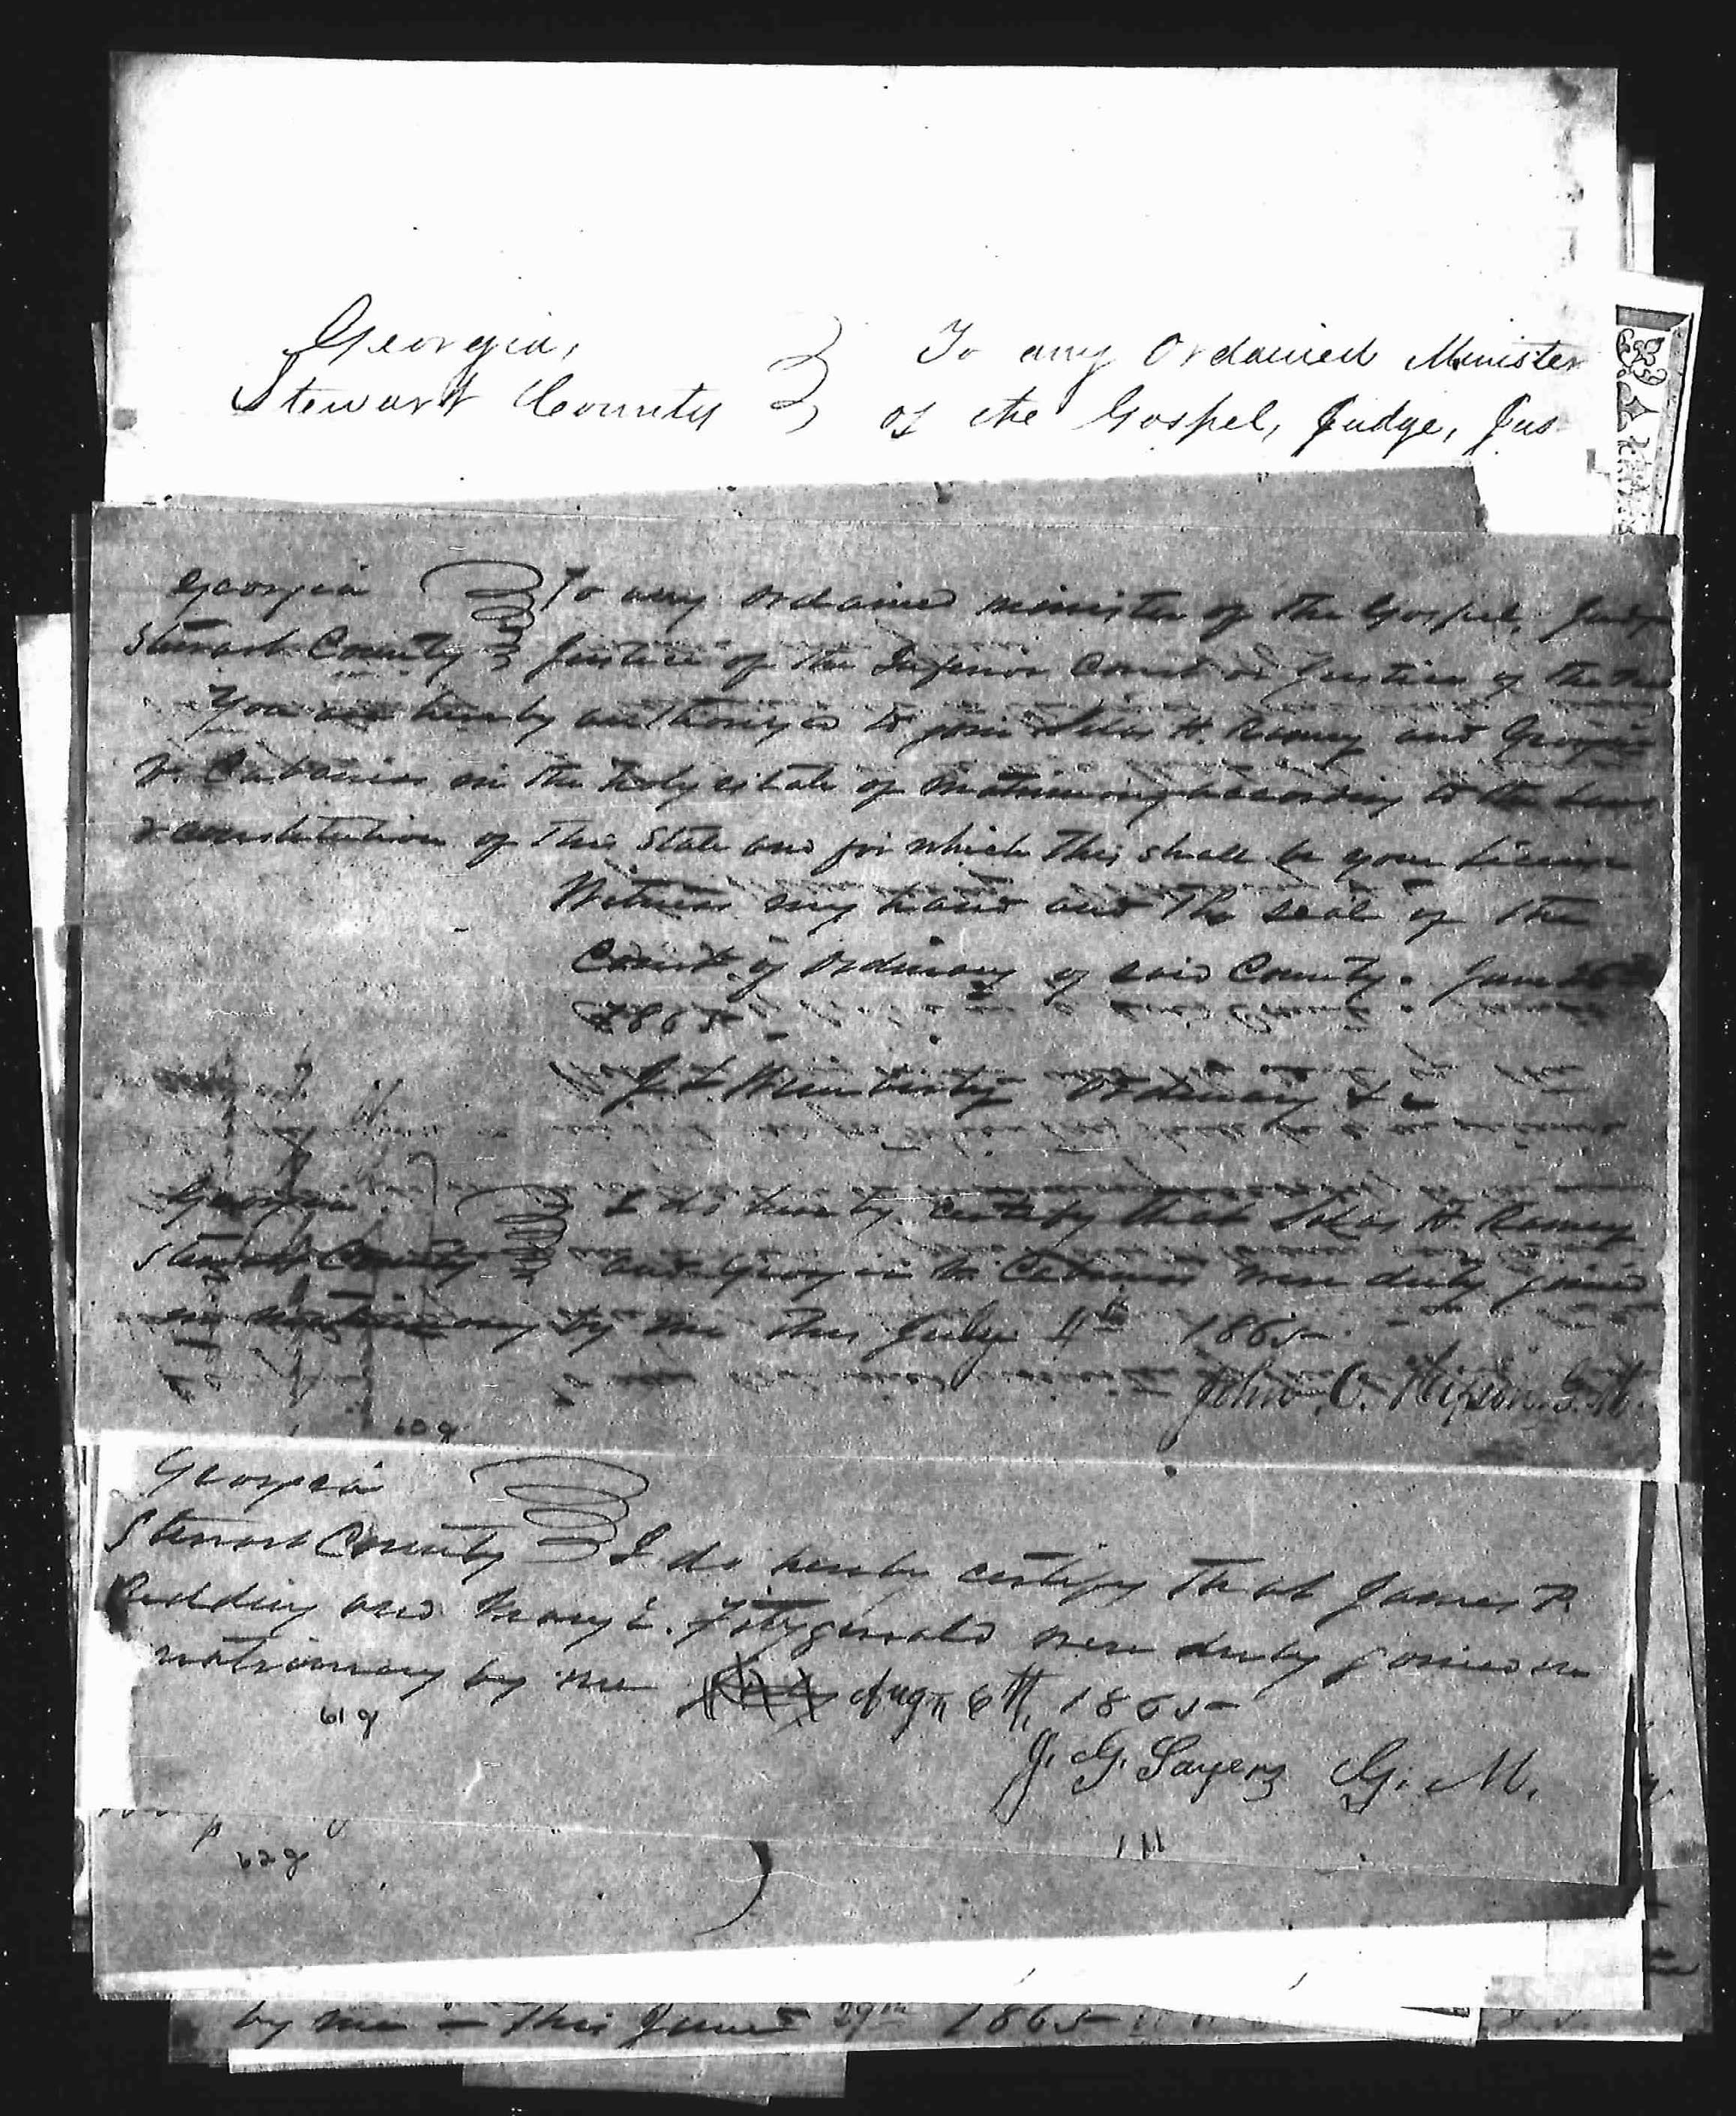 Georgia, To any Ordained Minister
Stewart County of the Gospel, Judge, Jus
Georgia To any ordained minister of the Gospel, Judge
Stewart County Justice of the Inferior Court or Justice of the
You are hereby authorized to join Silas H. Ramey and Georgia
in the Holy estate of Matrimony according to the Laws
& constitution of this State and for which this shall be your License
Witness my hand and the seal of the
Court of Ordinary of said County. June
1865
J. L. Wimberly Ordinary &c
Georgia I do hereby certify that Silas H. Ramey
Stewart County and Georgia were duly joined
in matrimony by me this July 11th 1865
John C. Hixson, G. M.
609
Georgia
Stewart County I do hereby certify that James P.
Redding and Mary E. Fitzgerald were duly joined in
matrimony by me Aug 6th, 1865
619
J. G. Sayers G. M.
629
by me this June 29th 1865